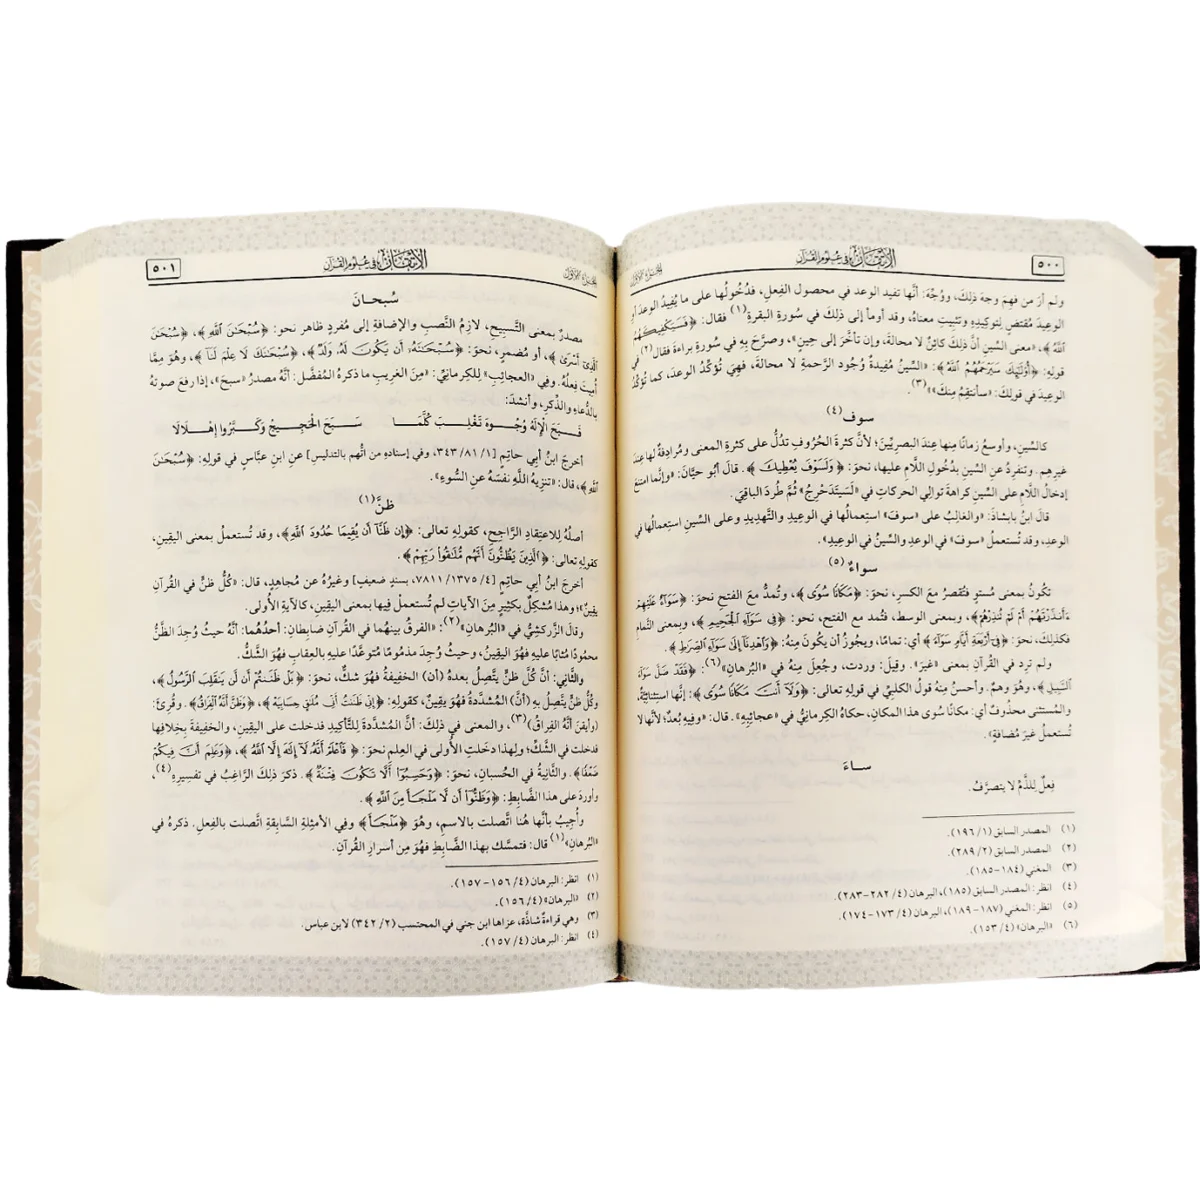 ٥٠٠
الإتقان في علوم القرآن
الجزء الأول
ولم أرَ من فهمَ وجهَ ذلكَ، ووُجِّهَ: أنَّها تفيد الوعد في محصول الفِعلِ، فدُخُولُها على ما يُفِيدُ الوعدَ أو
الوعِيدَ مُقتضٍ لِتوكِيدِهِ وتثبِيتِ معناهُ، وقد أومأ إلى ذلِكَ في سُورةِ البقرةِ(١) فقال: ﴿فَسَيَكْفِيكَهُمُ
ٱللَّهُ﴾، «معنى السِّينِ أنَّ ذلِكَ كائِنٌ لا محالةَ، وإن تأخَّرَ إلى حِينٍ»، وصرَّحَ بِهِ في سُورةِ براءةَ فقال(٢) في
قولِهِ: ﴿أُوْلَٰٓئِكَ سَيَرْحَمُهُمُ ٱللَّهُ﴾: «السِّينُ مُفِيدةٌ وُجُودَ الرَّحمةِ لا محالةَ، فهِيَ تُؤكِّدُ الوعدَ، كما تُؤكِّدُ
الوعِيدَ في قولِكَ: «سأنتقِمُ مِنكَ»»(٣).
سوف(٤)
كالسِّينِ، وأوسعُ زمانًا مِنها عِندَ البصرِيِّينَ؛ لأنَّ كثرةَ الحُرُوفِ تدُلُّ على كثرةِ المعنى ومُرادِفةٌ لها عِندَ
غيرِهِم. وتنفرِدُ عنِ السِّينِ بِدُخُولِ اللَّامِ عليها، نحوَ: ﴿وَلَسَوْفَ يُعْطِيكَ﴾. قالَ أبُو حيَّانَ: «وإنَّما امتنعَ
إدخالُ اللَّامِ على السِّينِ كراهةَ توالِي الحركاتِ في «لَسَيَتَدَحْرِجُ» ثُمَّ طُرِدَ الباقِي.
قالَ ابنُ بابشاذَ: «والغالِبُ على «سوفَ» استِعمالُها في الوعِيدِ والتَّهدِيدِ وعلى السِّينِ استِعمالُها في
الوعدِ، وقد تُستعملُ «سوفَ» في الوعدِ والسِّينُ في الوعِيدِ».
سواءٌ(٥)
تكُونُ بمعنى مُستوٍ فتُقصَرُ معَ الكسرِ، نحوَ: ﴿مَكَانًا سُوًى﴾، وتُمدُّ معَ الفتحِ نحوَ: ﴿سَوَآءٌ عَلَيْهِمْ
ءَأَنذَرْتَهُمْ أَمْ لَمْ تُنذِرْهُمْ﴾، وبمعنى الوسط، فتُمد مع الفتح، نحو: ﴿فِي سَوَآءِ ٱلْجَحِيمِ﴾، وبِمعنى التَّمام
فكذلِكَ، نحوَ: ﴿فِيٓ أَرْبَعَةِ أَيَّامٍ سَوَآءً﴾ أي: تمامًا، ويجوزُ أن يكُونَ مِنهُ: ﴿وَٱهْدِنَآ إِلَىٰ سَوَآءِ ٱلصِّرَٰطِ﴾.
ولم ترِد في القُرآنِ بمعنى «غيرَ». وقِيلَ: وردت، وجُعِلَ مِنهُ في «البُرهانِ»(٦): ﴿فَقَدْ ضَلَّ سَوَآءَ
ٱلسَّبِيلِ﴾، وهُوَ وهمٌ. وأحسنُ مِنهُ قولُ الكلبِيِّ في قولِهِ تعالى: ﴿وَلَآ أَنتَ مَكَانًا سُوًى﴾: إنَّها استثنائِيَّةٌ،
والمُستثنى محذُوفٌ أي: مكانًا سُوى هذا المكانِ، حكاهُ الكِرمانِيُّ في «عجائِبِهِ». قال: «وفِيهِ بُعدٌ؛ لأنَّها لا
تُستعملُ غيرَ مُضافةٍ».
ساءَ
فِعلٌ لِلذَّمِّ لا يتصرَّفُ.
(١) المصدر السابق (١/ ١٩٦).
(٢) المصدر السابق (٢/ ٢٨٩).
(٣) المغني (١٨٤-١٨٥).
(٤) انظر: المصدر السابق (١٨٥)، البرهان (٤/ ٢٨٢-٢٨٣).
(٥) انظر: المغني (١٨٧-١٨٩)، البرهان (٤/ ١٧٣-١٧٤).
(٦) «البرهان» (٤/ ١٥٣).
الجزء الأول
الإتقان في علوم القرآن
٥٠١
سُبحانَ
مصدرٌ بمعنى التَّسبِيحِ، لازِمُ النَّصبِ والإضافةِ إلى مُفردٍ ظاهر نحو: ﴿سُبْحَٰنَ ٱللَّهِ﴾، ﴿سُبْحَٰنَ
ٱلَّذِيٓ أَسْرَىٰ﴾، أو مُضمرٍ، نحوَ: ﴿سُبْحَٰنَهُۥٓ أَن يَكُونَ لَهُۥ وَلَدٌ﴾، ﴿سُبْحَٰنَكَ لَا عِلْمَ لَنَآ﴾، وهُوَ مِمَّا
أُمِيتَ فِعلُهُ. وفِي «العجائِبِ» لِلكِرمانِيِّ: «مِنَ الغرِيبِ ما ذكرهُ المُفضَّل: أنَّهُ مصدرُ «سبحَ»، إذا رفعَ صوتهُ
بِالدُّعاءِ والذِّكرِ، وأنشدَ:
قَبَحَ الْإِلَهُ وُجُوهَ تَغْلِبَ كُلَّمَا سَبَحَ الْحَجِيجُ وَكَبَّرُوا إِهْلَالَا
أخرجَ ابنُ أبي حاتِمٍ [١/ ٨١/ ٣٤٣، وفي إسناده من اتُّهم بالتدليس] عنِ ابنِ عبَّاسٍ في قولِهِ: ﴿سُبْحَٰنَ
ٱللَّهِ﴾، قال: «تنزِيهُ اللَّهِ نفسَهُ عنِ السُّوءِ».
ظنَّ(١)
أصلُهُ لِلاعتِقادِ الرَّاجِحِ، كقولِهِ تعالى: ﴿إِن ظَنَّآ أَن يُقِيمَا حُدُودَ ٱللَّهِ﴾، وقد تُستعملُ بمعنى اليقِينِ،
كقولِهِ تعالى: ﴿ٱلَّذِينَ يَظُنُّونَ أَنَّهُم مُّلَٰقُوا۟ رَبِّهِمْ﴾.
أخرجَ ابنُ أبي حاتِمٍ [٤/ ١٣٧٥/ ٧٨١١، بسندٍ ضعيفٍ] وغيرُهُ عن مُجاهِدٍ، قال: «كُلُّ ظنٍّ في القُرآنِ
يقِينٌ»؛ وهذا مُشكِلٌ بكثِيرٍ مِنَ الآياتِ لم تُستعملْ فِيها بمعنى اليقِينِ، كالآيةِ الأُولى.
وقالَ الزَّركشِيُّ في «البُرهانِ»(٢): «الفرقُ بينهُما في القُرآنِ ضابِطانِ: أحدُهُما: أنَّهُ حيثُ وُجِدَ الظَّنُّ
محمُودًا مُثابًا عليهِ فهُوَ اليقِينُ، وحيثُ وُجِدَ مذمُومًا مُتوعَّدًا عليهِ بالعِقابِ فهُوَ الشَّكُّ.
والثَّانِي: أنَّ كُلَّ ظنٍّ يتَّصِلُ بعدهُ (أن) الخفِيفةُ فهُوَ شكٌّ، نحوَ: ﴿بَلْ ظَنَنتُمْ أَن لَّن يَنقَلِبَ ٱلرَّسُولُ﴾،
وكُلُّ ظنٍّ يتَّصِلُ بِهِ (أنَّ) المُشدَّدةُ فهُوَ يقِينٌ، كقولِهِ: ﴿إِنِّي ظَنَنتُ أَنِّي مُلَٰقٍ حِسَابِيَهْ﴾، ﴿وَظَنَّ أَنَّهُ ٱلْفِرَاقُ﴾. وقُرِئَ:
(وأيقنَ أنَّهُ الفِراقُ)(٣)، والمعنى في ذلِكَ: أنَّ المُشدَّدةَ لِلتَّأكِيدِ فدخلت على اليقِينِ، والخفِيفةَ بخِلافِها
فدخلت في الشَّكِّ؛ ولِهذا دخلتِ الأُولى في العِلمِ نحوَ: ﴿فَٱعْلَمْ أَنَّهُۥ لَآ إِلَٰهَ إِلَّا ٱللَّهُ﴾، ﴿وَعَلِمَ أَنَّ فِيكُمْ
ضَعْفًا﴾. والثَّانِيةُ في الحُسبانِ، نحوَ: ﴿وَحَسِبُوٓا۟ أَلَّا تَكُونَ فِتْنَةٌ﴾. ذكرَ ذلِكَ الرَّاغِبُ في تفسِيرِهِ(٤)،
وأوردَ على هذا الضَّابِطِ: ﴿وَظَنُّوٓا۟ أَن لَّا مَلْجَأَ مِنَ ٱللَّهِ﴾.
وأُجِيبُ بأنَّها هُنا اتَّصلت بالاسمِ، وهُوَ ﴿مَلْجَأَ﴾ وفِي الأمثِلةِ السَّابِقةِ اتَّصلت بالفِعلِ. ذكرهُ في
«البُرهانِ»(١) قال: فتمسَّك بهذا الضَّابِطِ فهُوَ مِن أسرارِ القُرآنِ.
(١) انظر: البرهان (٤/ ١٥٦-١٥٧).
(٢) «البرهان» (٤/ ١٥٦).
(٣) وهي قراءةٌ شاذَّة، عزاها ابن جني في المحتسب (٢/ ٣٤٢) لابن عباس.
(٤) انظر: البرهان (٤/ ١٥٧).